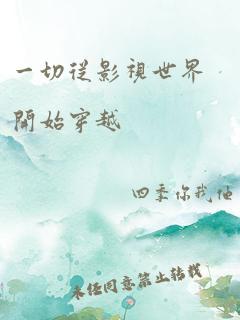 一切從影視世界
開始穿越
四季你我他
未經同意禁止轉載